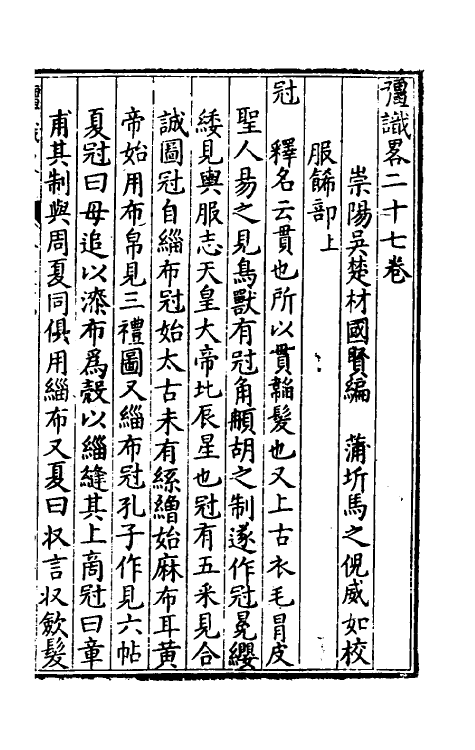 彊識畧二十七卷
崇陽吳楚材國賢編 蒲圻馬之倪威如校
服餙部上
冠 釋名云貫也所以貫韜髮也又上古衣毛冒皮
聖人易之見鳥獸有冠角䫇胡之制遂作冠冕纓
緌見輿服志天皇大帝北辰星也冠有五采見合
誠圖冠自緇布冠始太古未有絲繒始麻布耳黃
帝始用布帛見三禮圖又緇布冠孔子作見六帖
夏冠曰毋追以漆布爲殼以緇縫其上啇冠曰章
甫其制與周夏同俱用緇布又夏曰収言収歛髮